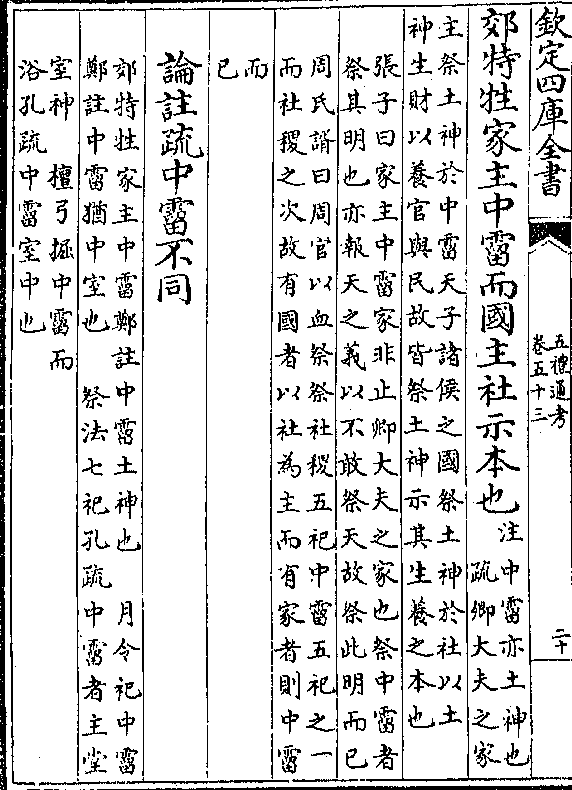 欽定四庫全書
五禮通考
卷五十三
二十
郊特牲家主中霤而國主社示本也
注中霤亦土神也
疏卿大夫之家
主祭土神於中霤天子諸侯之國祭土神於社以土
神生財以養官與民故皆祭土神示其生養之本也
張子曰家主中霤家非止卿大夫之家也祭中霤者
祭其明也亦報天之義以不敢祭天故祭此明而已
周氏諝曰周官以血祭祭社稷五祀中霤五祀之一
而社稷之次故有國者以社為主而有家者則中霤
而
已
論註疏中霤不同
郊特牲家主中霤鄭註中霤土神也　月令祀中霤
鄭註中霤猶中室也　祭法七祀孔疏中霤者主堂
室神　檀弓掘中霤而
浴孔疏中霤室中也